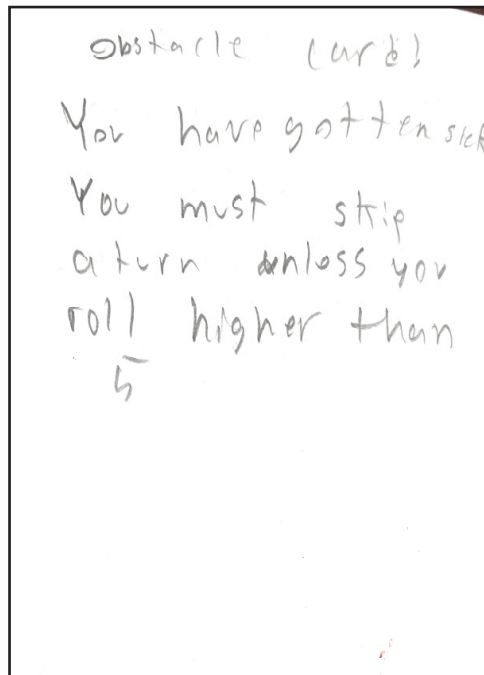 Obstacle Card!
You have gotten sick
You must skip
a turn unless you
roll higher than
5